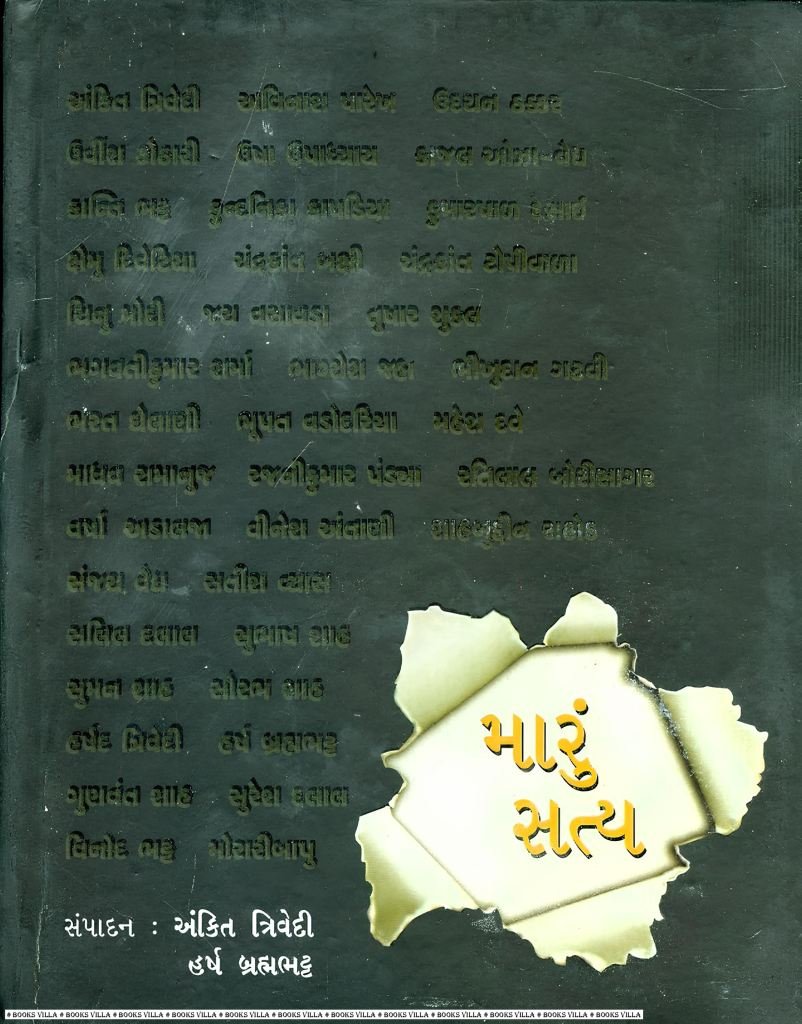 અંકિત ત્રિવેદી અવિનાશ પારેખ ઉદયન ઠક્કર
ઉર્વીશ કોઠારી ઉષા ઉપાધ્યાય કાજલ ઓઝા-વૈદ્ય
કાન્તિ ભટ્ટ કુન્દનિકા કાપડિયા કુમારપાળ દેસાઈ
દિવેટિયા ચંદ્રકાંત બક્ષી ચંદ્રકાંત ટોપીવાળા
ચિનુ મોદી જય વસાવડા તુષાર શુક્લ
ભગવતીકુમાર શર્મા ભાગ્યેશ જહા ભીખુદાન ગઢવી
ભરત ઘેલાણી ભૂપત વડોદરિયા મહેશ દવે
માધવ રામાનુજ રજનીકુમાર પંડ્યા રતિલાલ બોરીસાગર
વર્ષા અડાલજા વીનેશ અંતાણી શાહબુદ્દીન રાઠોડ
સંજય વૈદ્ય સતીશ વ્યાસ
સલિલ દલાલ સુભાષ શાહ
સુમન શાહ સૌરભ શાહ
હર્ષદ ત્રિવેદી હર્ષ બ્રહ્મભટ્ટ
ગુણવંત શાહ સુરેશ દલાલ
વિનોદ ભટ્ટ મોરારીબાપુ
મારું
સત્ય
સંપાદન : અંકિત ત્રિવેદી
હર્ષ બ્રહ્મભટ્ટ
# BOOKS VILLA # BOOKS VILLA # BOOKS VILLA # BOOKS VILLA # BOOKS VILLA # BOOKS VILLA # BOOKS VILLA # BOOKS VILLA # BOOKS VILLA # BOOKS VILLA # BOOKS VILLA # BOOKS VILLA